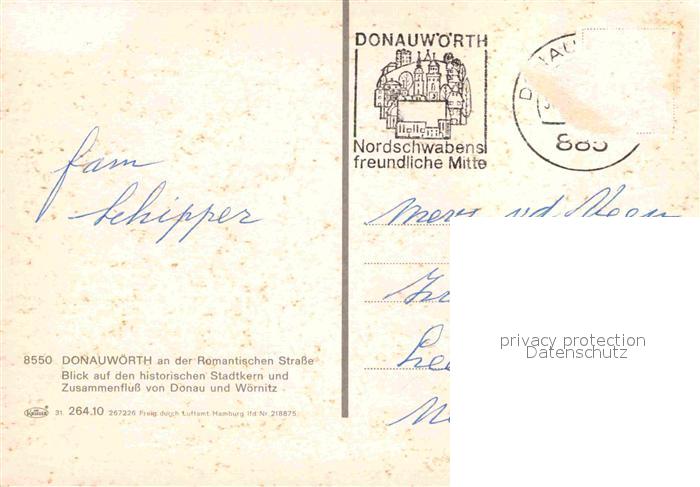 DONAUWÖRTH
Nordschwabens
freundliche Mitte
DONAU
885
fam
Schipper
privacy protection
Datenschutz
8550 DONAUWÖRTH an der Romantischen Straße
Blick auf den historischen Stadtkern und
Zusammenfluß von Donau und Wörnitz
Krüger 31. 264.10 267226 Freig. durch Luftamt Hamburg lfd Nr. 218875